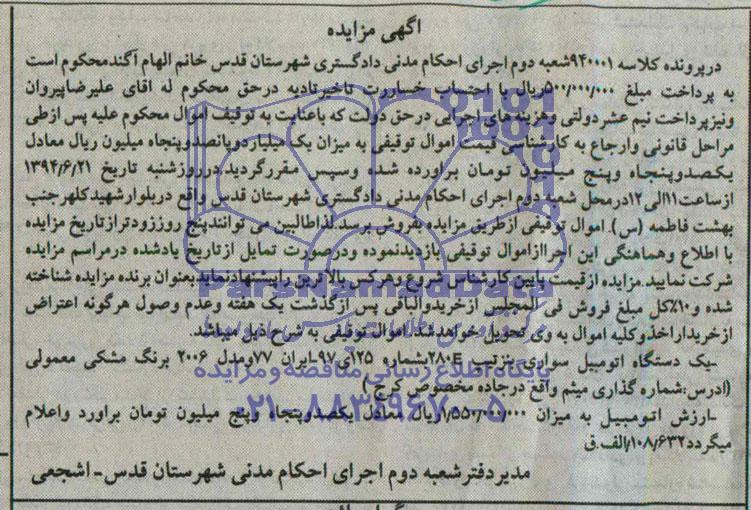 آگهی مزایده
درپرونده کلاسه ۹۴۰۰۰۱شعبه دوم اجرای احکام مدنی دادگستری شهرستان قدس خانم الهام آگندمحکوم است
به پرداخت مبلغ ۵۰۰/۰۰۰/۰۰۰ریال با احتساب خساررت تاخیرتادیه درحق محکوم له اقای علیرضاپیروان
ونیزپرداخت نیم عشردولتی وهزینه های اجرایی درحق دولت که باعنایت به توقیف اموال محکوم علیه پس ازطی
مراحل قانونی وارجاع به کارشناسی قیمت اموال توقیفی به میزان یک میلیاردوپانصدوپنجاه میلیون ریال معادل
یکصدوپنجاه وپنج میلیون تومان براورده شده وسپس مقررگردید.درروزشنبه تاریخ ۱۳۹۴/۶/۲۱
ازساعت۱۱الی۱۲درمحل شعبه دوم اجرای احکام مدنی دادگستری شهرستان قدس واقع دربلوارشهیدکلهرجنب
بهشت فاطمه (س). اموال توقیفی ازطریق مزایده بفروش برسد.لذاطالبین می توانندپنج روززودترازتاریخ مزایده
با اطلاع وهماهنگی این اجراازاموال توقیفی بازدیدنموده ودرصورت تمایل ازتاریخ یادشده درمراسم مزایده
شرکت نمایید.مزایده ازقیمت پایین کارشناس شروع وهرکس بالاترین راپیشنهادنمایدبعنوان برنده مزایده شناخته
شده و۱۰٪کل مبلغ فروش فی المجلس ازخریدوالباقی پس ازگذشت یک هفته وعدم وصول هرگونه اعتراض
ازخریداراخذوکلیه اموال به وی تحویل خواهدشد.اموال توقیفی به شرح ذیل میباشد.
-یک دستگاه اتومبیل سواری بنزتیپ ۲۸۰Eبشماره ۱۲۵ی۹۷-ایران ۷۷ومدل ۲۰۰۶ برنگ مشکی معمولی
(ادرس:شماره گذاری میثم واقع درجاده مخصوص کرج )
-ارزش اتومبیل به میزان ۱/۵۵۰/۰۰۰/۰۰۰ریال معادل یکصدوپنجاه وپنج میلیون تومان براورد واعلام
میگردد۱۰۸/۶۳۲/الف.ق
مدیردفترشعبه دوم اجرای احکام مدنی شهرستان قدس-اشجعی
ParsNamadData
پایگاه اطلاع رسانی مناقصه ومزایده
۰۲۱-۸۸۳۴۹۶۷۰-۵